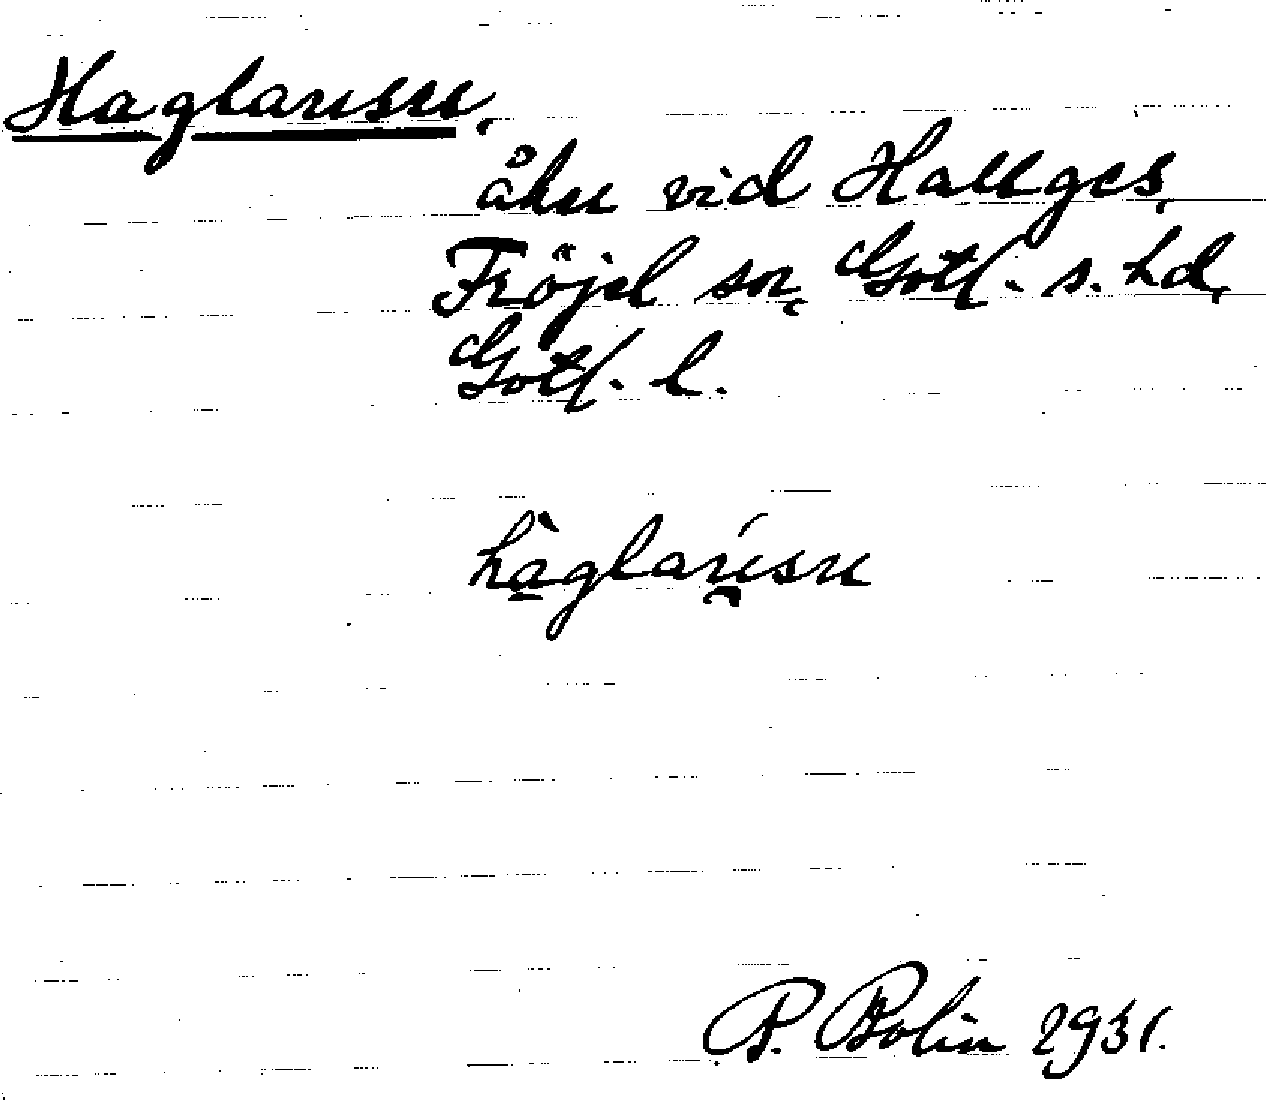 Haglarusu,
åker vid Hallges,
Fröjel sn, Gotl. s. hd,
Gotl. l.
hàglarúsu
P. Bolin 1931.